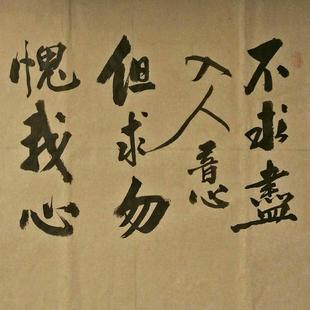 不求盡
入人意
但求勿
愧我心